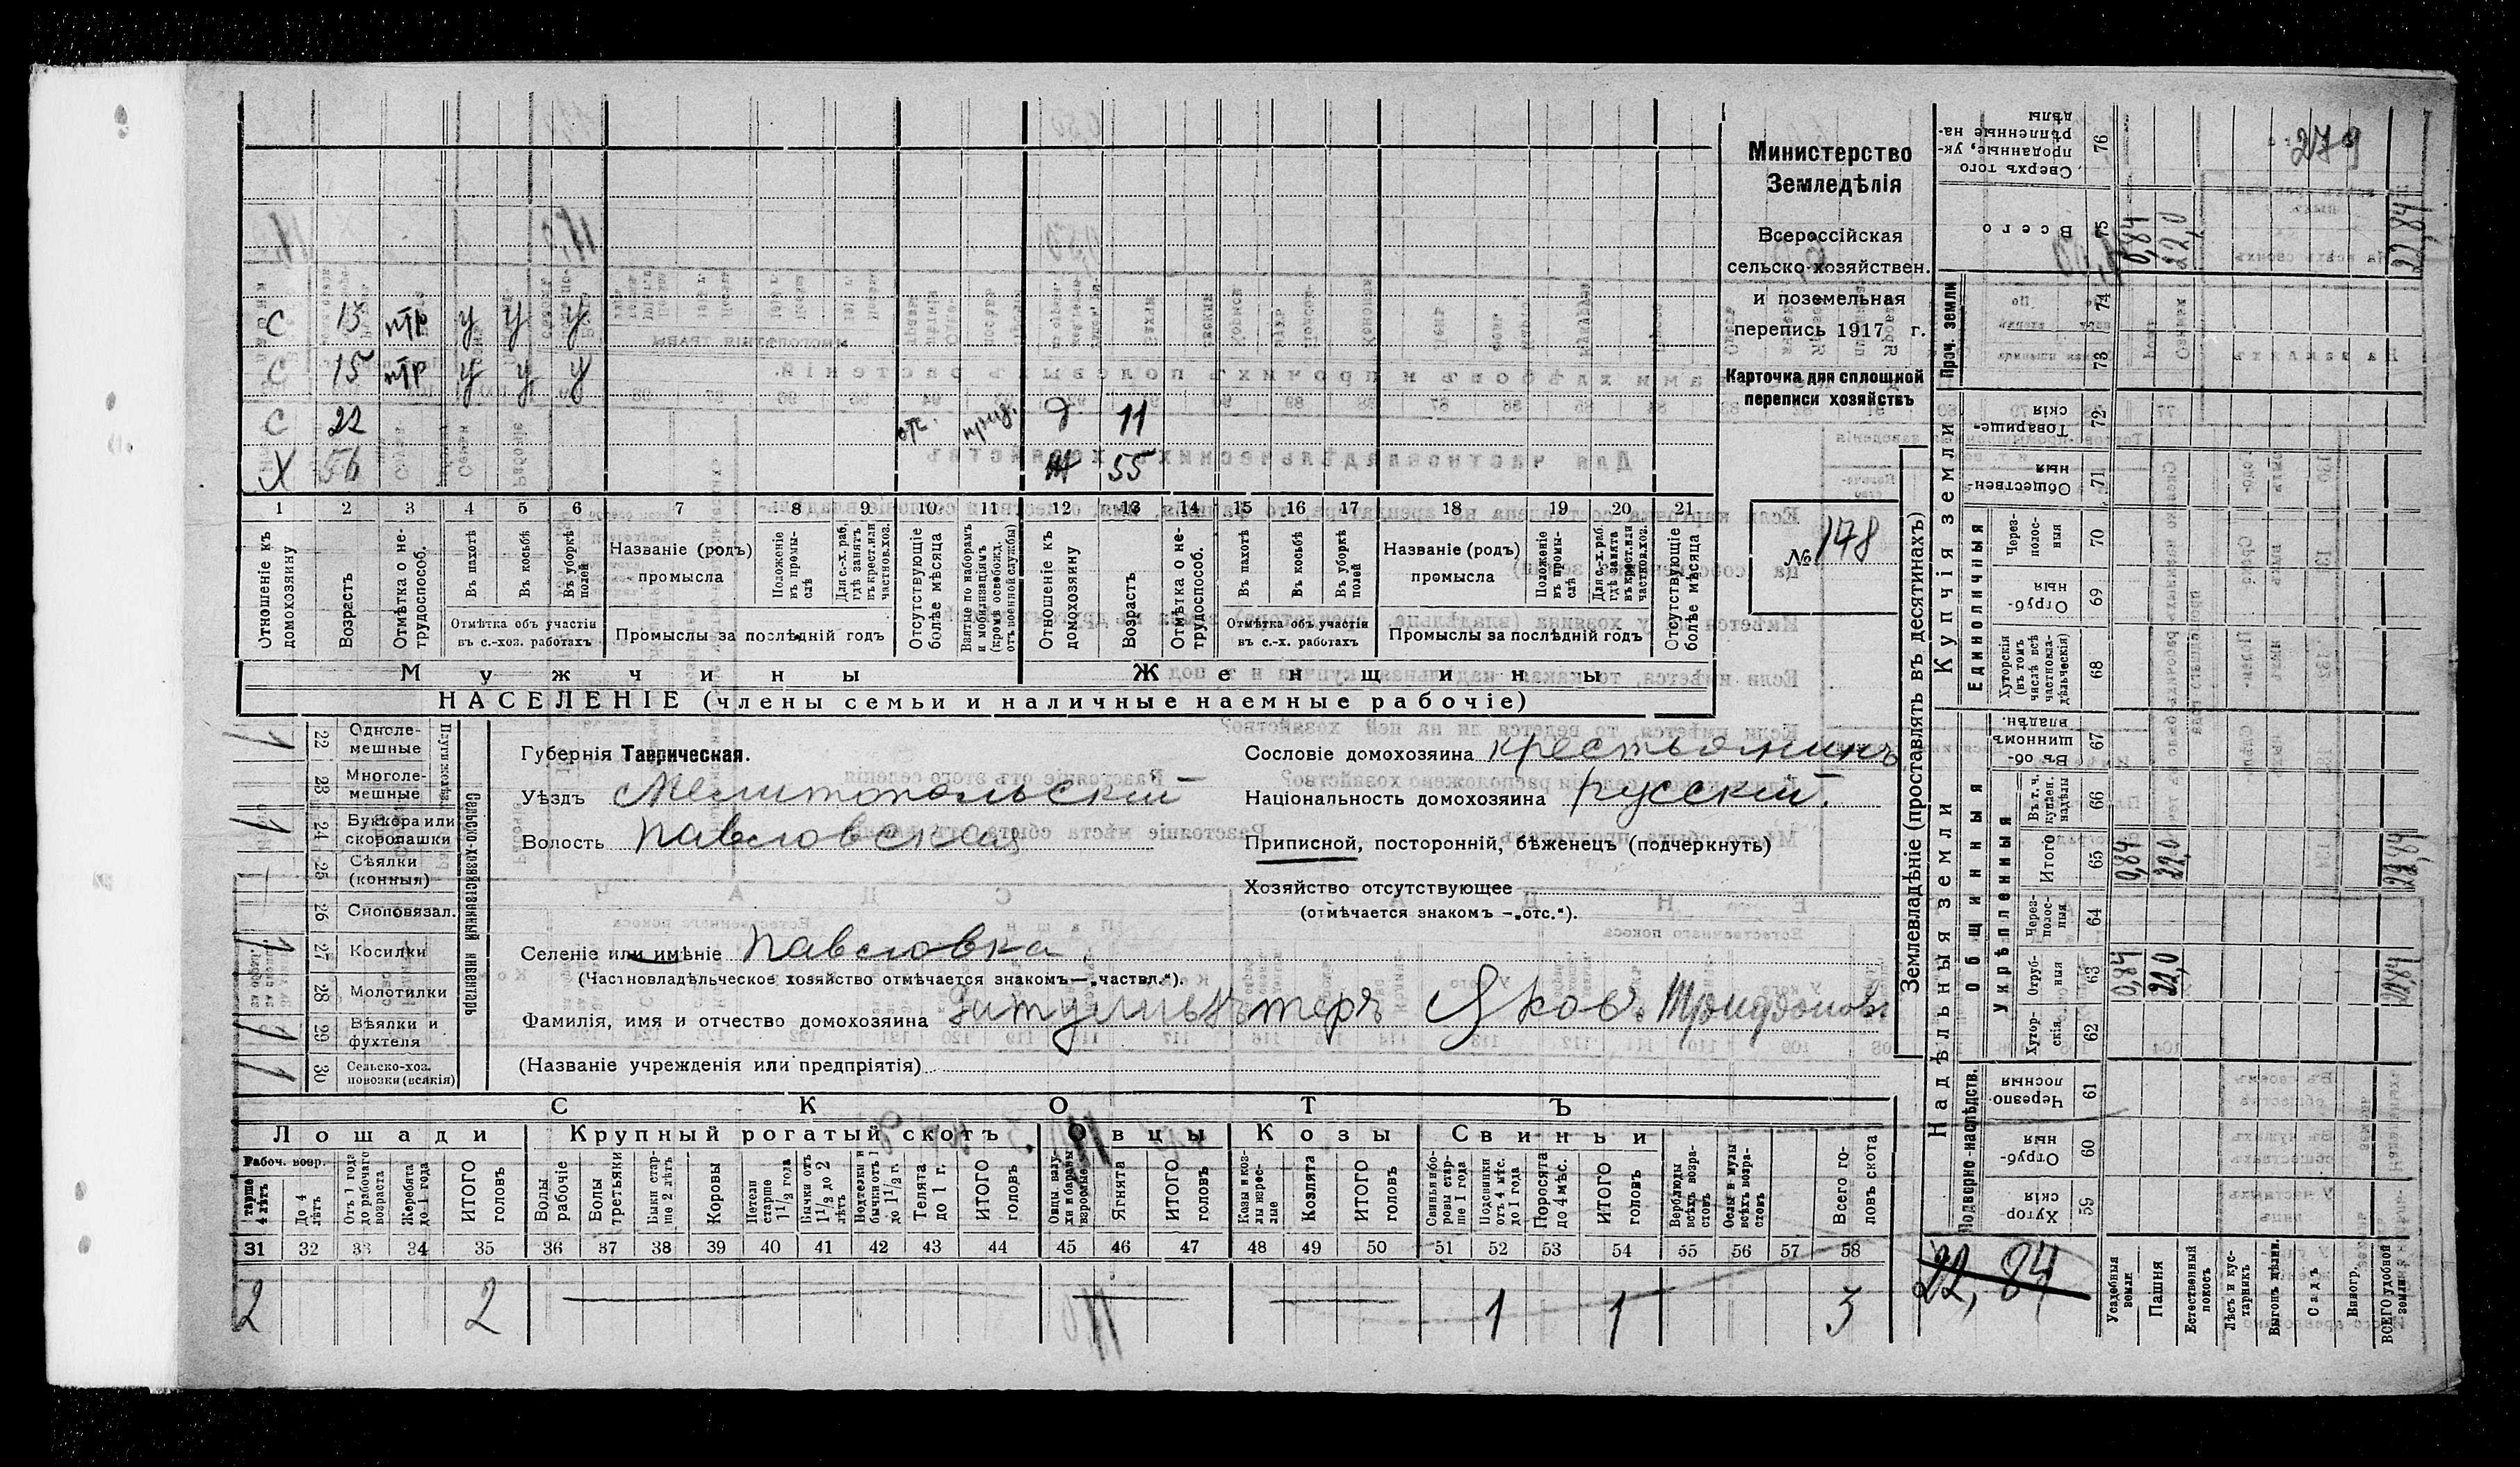 279
Министерство
Земледѣлія
Всероссійская
сельско-хозяйствен.
и поземельная
перепись 1917 г.
Карточка для сплошной
переписи хозяйствъ
№ 148
С 15 у у у
С 15 у у у
С 22 11
Х 56 55
1 2 3 4 5 6 7 8 9 10 11 12 13 14 15 16 17 18 19 20 21
Отношеніе къ домохозяину
Возрастъ
Отмѣтка о нетрудоспособ.
Въ пахотѣ
Въ косьбѣ
Въ уборкѣ полей
Отмѣтка объ участіи
въ с.-хоз. работахъ
Названіе (родъ)
промысла
Положеніе въ промыслѣ
Для с.-х. раб. гдѣ занятъ въ крест. или частнов. хоз.
Промыслы за послѣдній годъ
Отсутствующіе болѣе мѣсяца
Взятые по наборамъ и мобилизаціямъ (кромѣ освобожд. отъ военной службы)
Отношеніе къ домохозяину
Возрастъ
Отмѣтка о нетрудоспособ.
Въ пахотѣ
Въ косьбѣ
Въ уборкѣ полей
Отмѣтка объ участіи
въ с.-х. работахъ
Названіе (родъ)
промысла
Положеніе въ промыслѣ
Для с.-х. раб. гдѣ занята въ крест. или частнов. хоз.
Промыслы за послѣдній годъ
Отсутствующіе болѣе мѣсяца
Мужчины Женщины
НАСЕЛЕНІЕ (члены семьи и наличные наемные рабочіе)
22 Одноле-
мешные
23 Многоле-
мешные
24 Буккера или
скоропашки
25 Сѣялки
(конныя)
26 Сноповязал.
27 Косилки
28 Молотилки
29 Вѣялки и
фухтеля
30 Сельско-хоз.
повозки (всякія)
Сельско-хозяйственный инвентарь
Губернія Таврическая.
Уѣздъ Мелитопольскій
Волость Павловская
Селеніе или имѣніе Павловка
(Частновладѣльческое хозяйство отмѣчается знакомъ—„частвл.“).
Фамилія, имя и отчество домохозяина Яковъ
(Названіе учрежденія или предпріятія)
Сословіе домохозяина крестьянинъ
Національность домохозяина русскій.
Приписной, посторонній, бѣженецъ (подчеркнуть)
Хозяйство отсутствующее
(отмѣчается знакомъ —„отс.“).
СКОТЪ
Лошади Крупный рогатый скотъ Овцы Козы Свиньи
Рабоч. возр.
старше 4 лѣтъ
До 4 лѣтъ
Отъ 1 года до рабочаго возраста
Жеребята до 1 года
ИТОГО головъ
Волы рабочіе
Волы третьяки
Быки старше 2 лѣтъ
Коровы
Нетели старше 1½ года
Бычки отъ 1½ до 2 лѣтъ
Подтелки и бычки отъ 1 до 1½ г.
Телята до 1 г.
ИТОГО головъ
Овцы, валухи и бараны взрослые
Ягнята
ИТОГО головъ
Козы и козлы взрослые
Козлята
ИТОГО головъ
Свиньи и боровы старше 1 года
Подсвинки отъ 4 мѣс. до 1 года
Поросята до 4 мѣс.
ИТОГО головъ
Верблюды всѣхъ возрастовъ
Ослы и мулы всѣхъ возрастовъ
Всего головъ скота
31 32 33 34 35 36 37 38 39 40 41 42 43 44 45 46 47 48 49 50 51 52 53 54 55 56 57 58
2 2 1 1 3
Землевладѣніе (проставлять въ десятинахъ)
Надѣльныя земли Купчія земли Проч. земли
Подворно-наслѣдств.
Общинныя
Укрѣпленныя
Единоличныя
Хуторскія 59
Отрубныя 60
Черезполосныя 61
Хуторскія 62
Отрубныя 63 0,84 22,0 22,84
Черезполосныя 64
Итого 65 0,84 22,0 22,84
Въ т. ч. куплен. надѣлы 66
Въ общинномъ владѣн. 67
Хуторскія (въ томъ числѣ всѣ частновладѣльческія) 68
Отрубныя 69
Черезполосныя 70
Общественныя 71
Товарищескія 72
73
74
Всего 75 0,84 22,0 22,84
Сверхъ того проданные, укрѣпленные надѣлы 76
22,84
Усадебныя земли
Пашня
Естественный покосъ
Лѣсъ и кустарникъ
Выгонъ дѣлян.
Садъ
Виногр.
ВСЕГО удобной земли